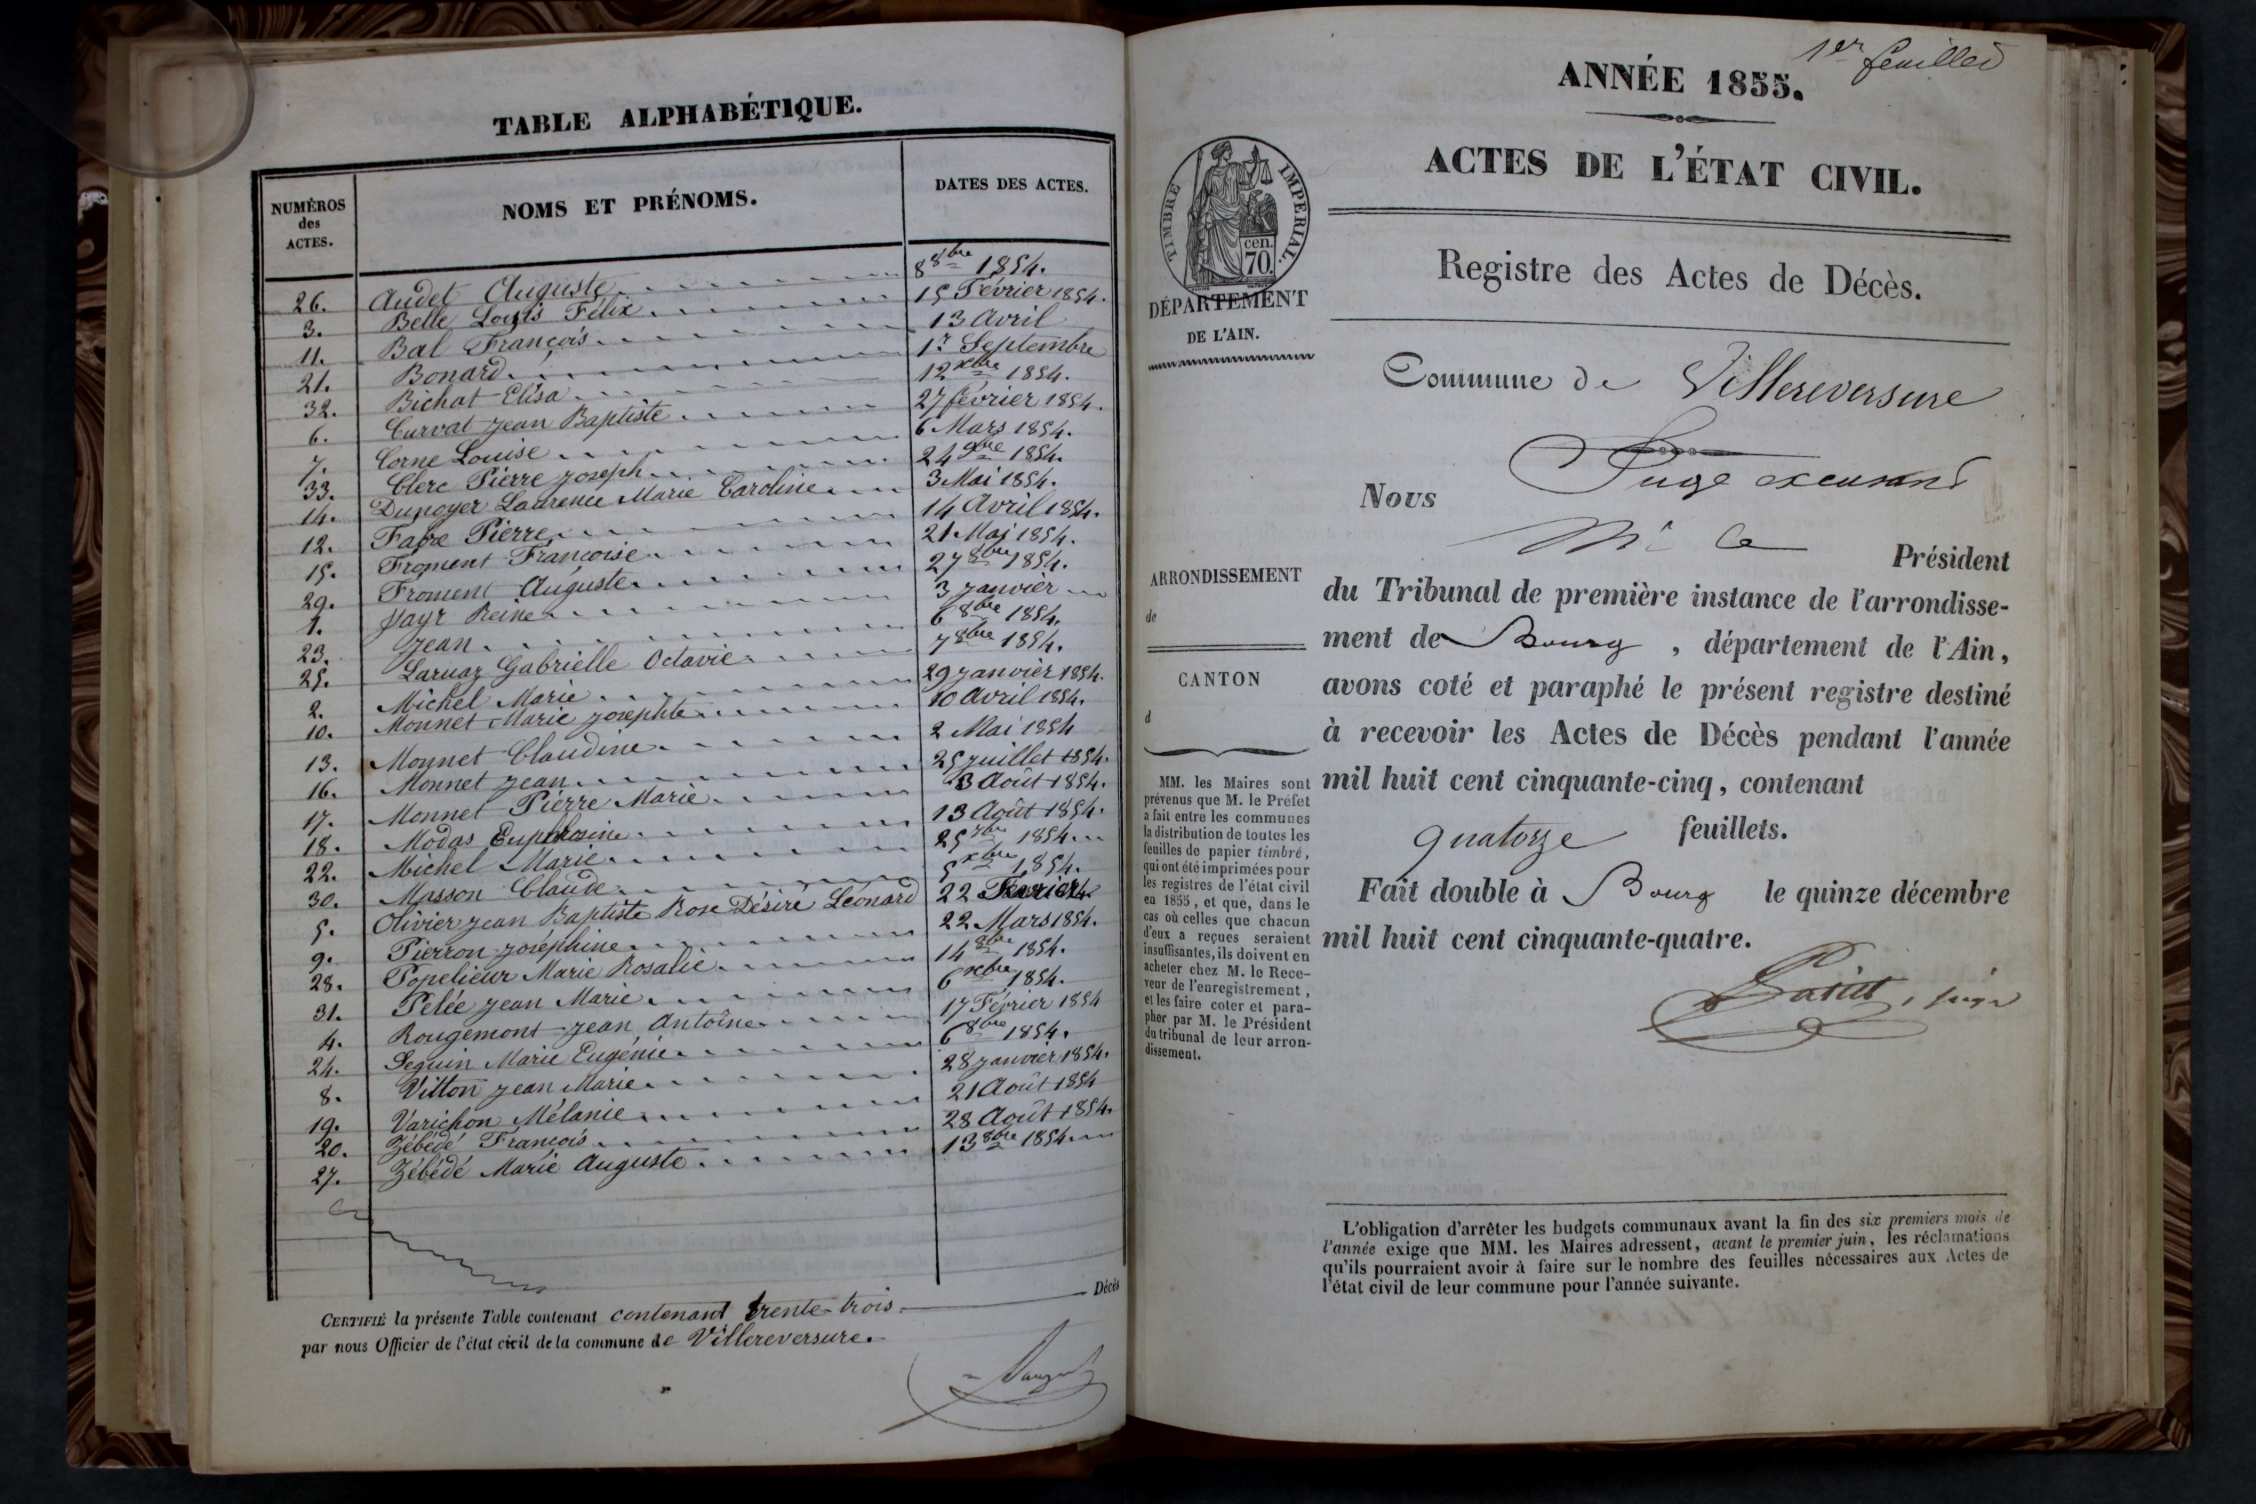 TABLE ALPHABÉTIQUE.
NUMÉROS des ACTES. NOMS ET PRÉNOMS. DATES DES ACTES.
26. Audet Auguste 8 8bre 1854.
3. Belle Louis Félix 15 Février 1854.
11. Bal François 13 Avril
21. Bonard 1r Septembre
32. Bichat Elisa 12 xbre 1854.
6. Curvat Jean Baptiste 27 février 1854.
7. Corne Louise 6 Mars 1854.
33. Clerc Pierre Joseph 24 xbre 1854.
14. Dupoyer Laurence Marie Caroline 3 Mai 1854.
12. Favre Pierre 14 Avril 1854.
15. Froment Françoise 21 Mai 1854.
29. Froment Auguste 27 8bre 1854.
1. Jayr Reine 3 Janvier
23. Jean 6 8bre 1854.
25. Laruaz Gabrielle Octavie 7 8bre 1854.
2. Michel Marie 29 Janvier 1854.
10. Monnet Marie Josephte 10 Avril 1854.
13. Monnet Claudine 2 Mai 1854
16. Monnet Jean 25 Juillet 1854.
17. Monnet Pierre Marie 3 Août 1854.
18. Modas Euphrosine 13 Août 1854.
22. Michel Marie 25 7bre 1854
30. Masson Claude 5 xbre 1854.
5. Olivier Jean Baptiste Rose Désiré Léonard 22 Février
9. Pierron Joséphine 22 Mars 1854.
28. Popelieur Marie Rosalie 14 8bre 1854.
31. Pelée Jean Marie 6 xbre 1854.
4. Rougemont Jean Antoine 17 Février 1854
24. Seguin Marie Eugénie 6 8bre 1854.
8. Vitton Jean Marie 28 Janvier 1854.
19. Varichon Mélanie 21 Août 1854
20. Zébédé François 28 Août 1854.
27. Zébédé Marie Auguste 13 8bre 1854.
CERTIFIÉ la présente Table contenant contenant trente-trois Décès
par nous Officier de l'état civil de la commune de Villereversure.
1er feuillet
ANNÉE 1855.
ACTES DE L'ÉTAT CIVIL.
TIMBRE IMPÉRIAL.
70 cen.
DÉPARTEMENT
DE L'AIN.
Registre des Actes de Décès.
Commune de Villereversure
Nous Juge excusant
Mr le Président
du Tribunal de première instance de l'arrondisse-
ment de Bourg, département de l'Ain,
avons coté et paraphé le présent registre destiné
à recevoir les Actes de Décès pendant l'année
mil huit cent cinquante-cinq, contenant
quatorze feuillets.
Fait double à Bourg le quinze décembre
mil huit cent cinquante-quatre.
juge
ARRONDISSEMENT
de
CANTON
d
MM. les Maires sont
prévenus que M. le Préfet
a fait entre les communes
la distribution de toutes les
feuilles de papier timbré,
qui ont été imprimées pour
les registres de l'état civil
en 1855, et que, dans le
cas où celles que chacun
d'eux a reçues seraient
insuffisantes, ils doivent en
acheter chez M. le Rece-
veur de l'enregistrement,
et les faire coter et para-
pher par M. le Président
du tribunal de leur arron-
dissement.
L'obligation d'arrêter les budgets communaux avant la fin des six premiers mois de
l'année exige que MM. les Maires adressent, avant le premier juin, les réclamations
qu'ils pourraient avoir à faire sur le nombre des feuilles nécessaires aux Actes de
l'état civil de leur commune pour l'année suivante.